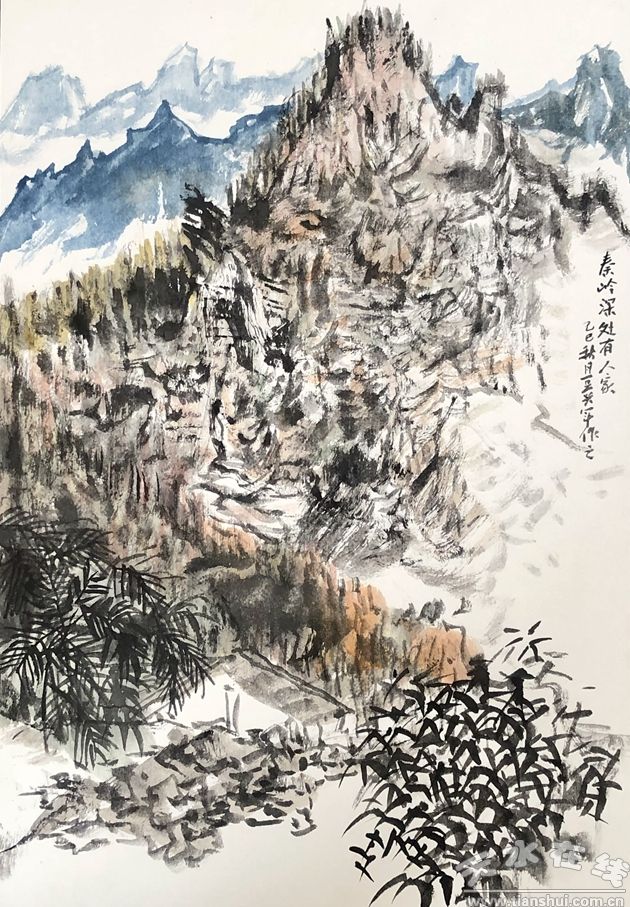 秦岭深处有人家
乙巳秋月王英军作之
天水在线
www.tianshui.com.cn